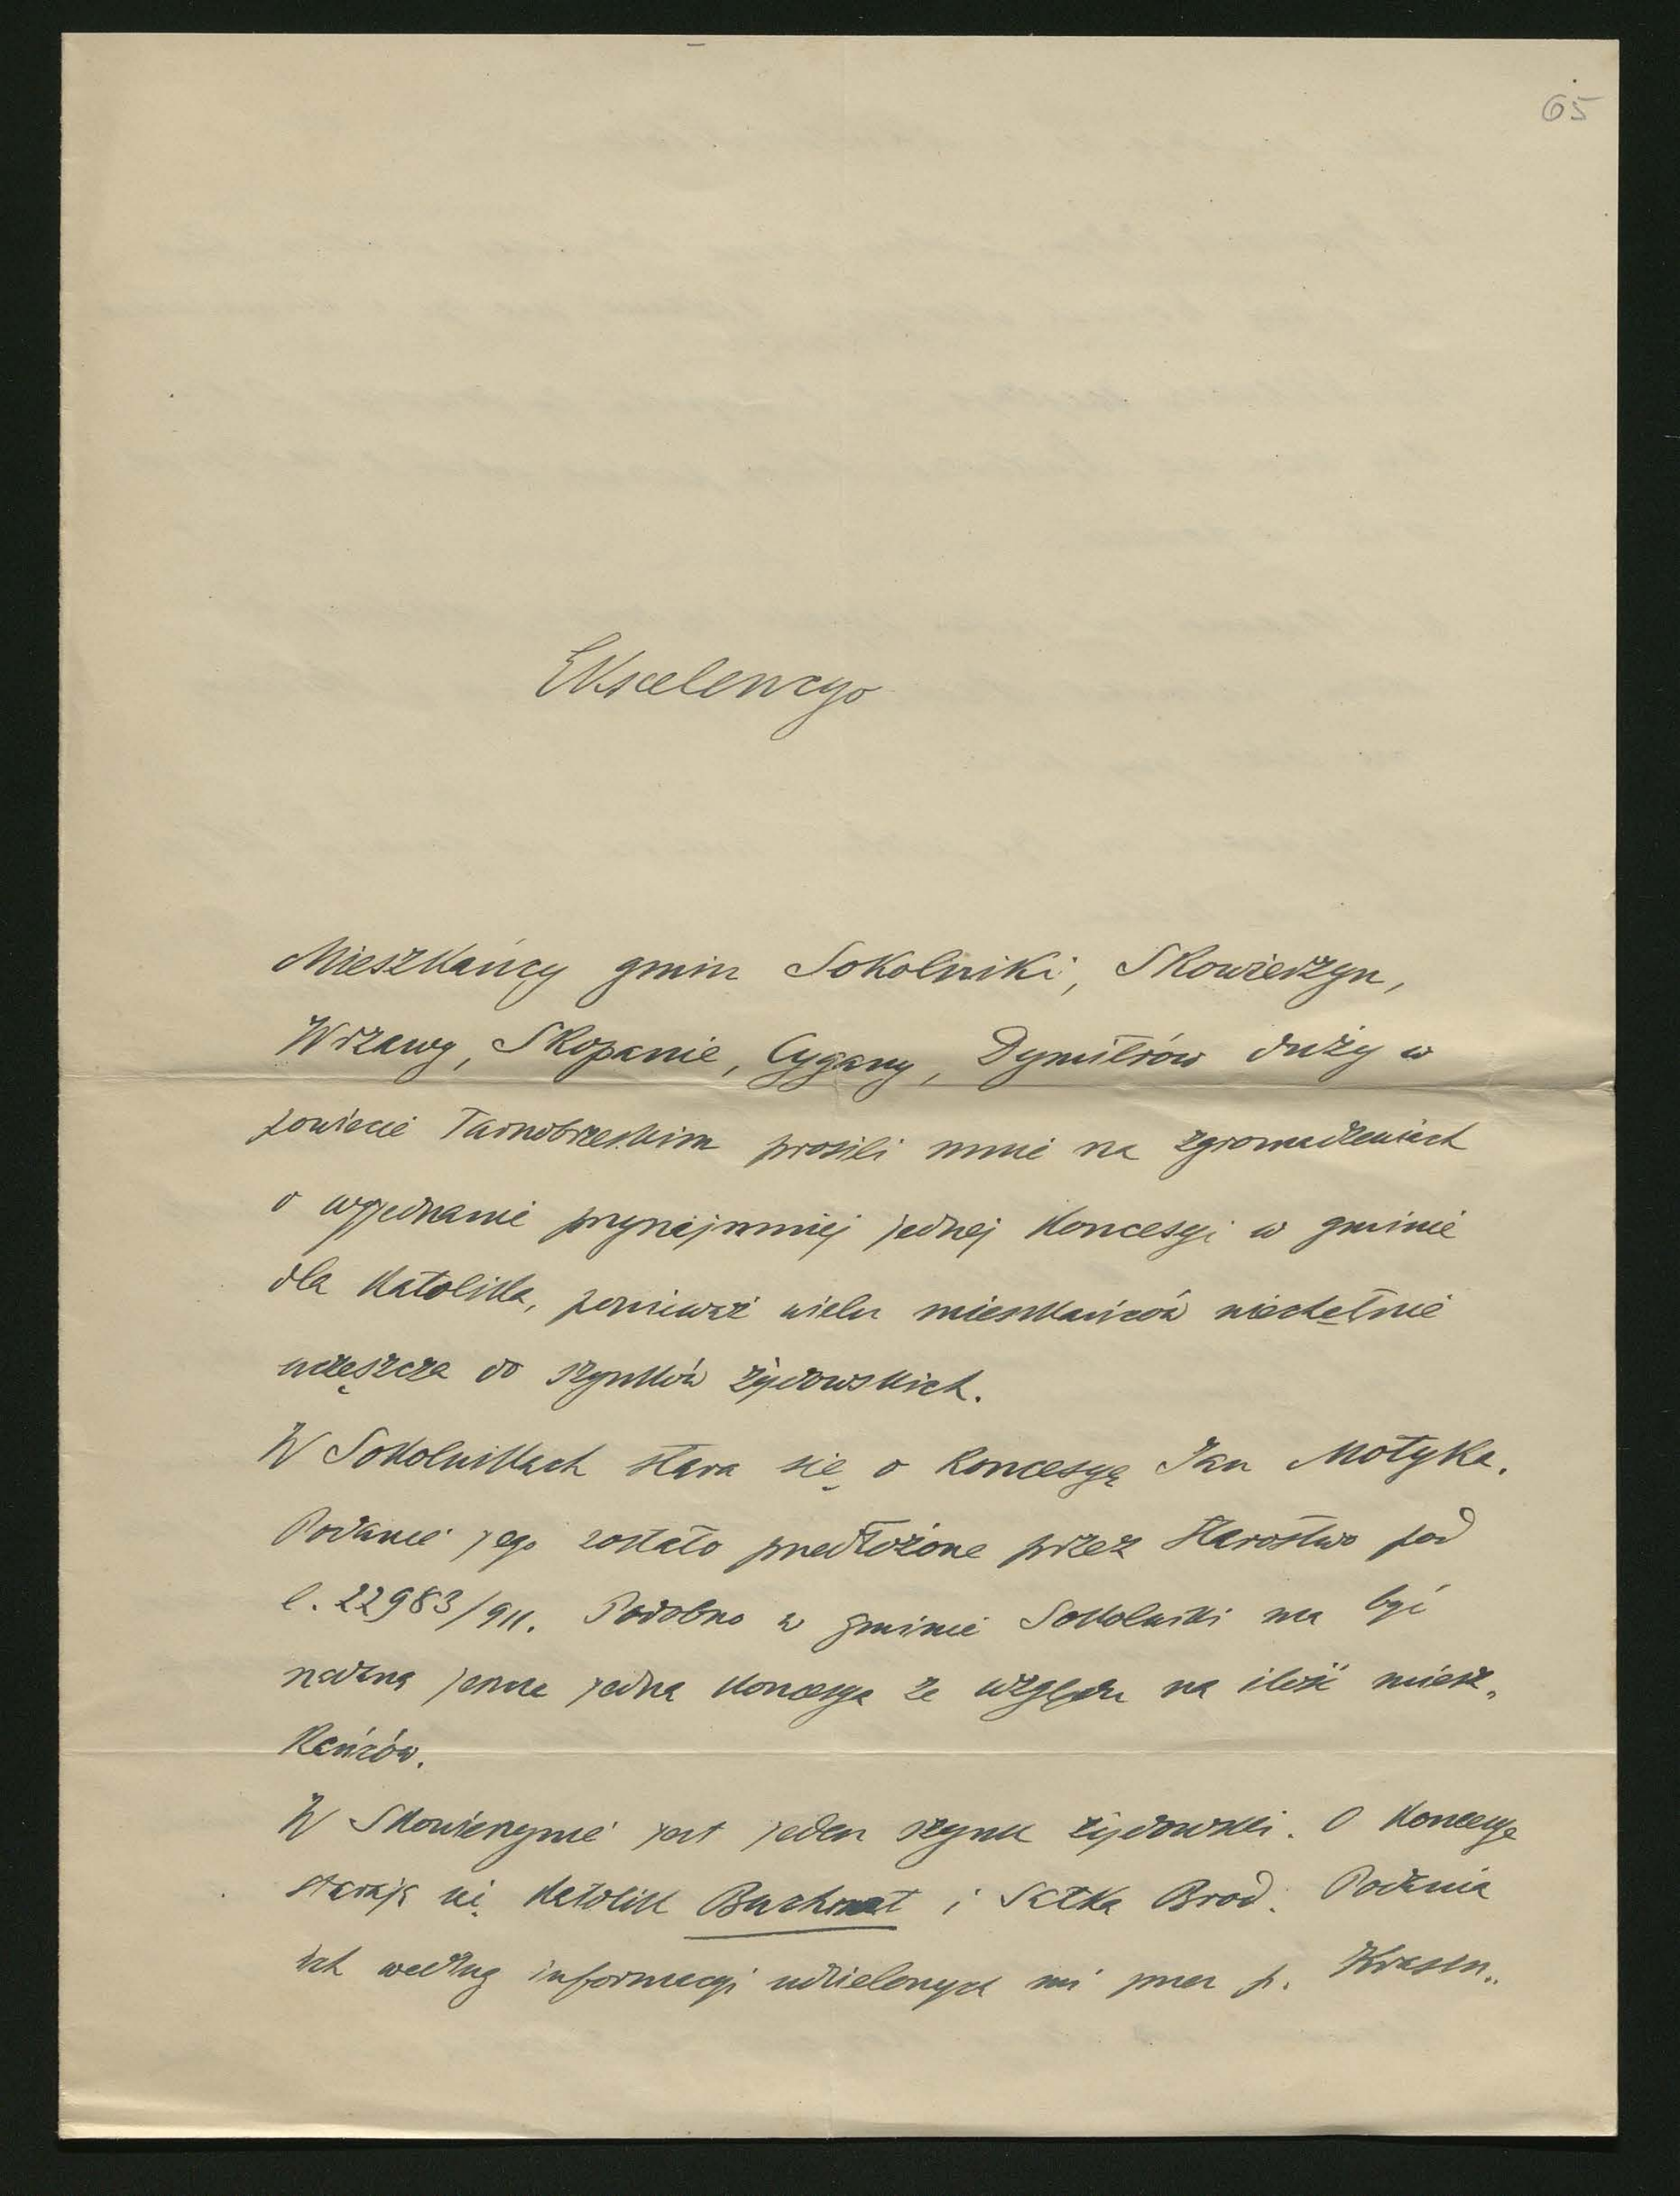 65
Ekscelencyo
Mieszkańcy gmin Sokolniki, Skowierzyn,
Wrzawy, Skopanie, Cygany, Dymitrów duży w
powiecie Tarnobrzeskim prosili mnie na zgromadzeniach
o wyjednanie przynajmniej jednej koncesyi w gminie
dla katolika, ponieważ wielu mieszkańców niechętnie
uczęszcza do szynków żydowskich.
W Sokolnikach stara się o koncesyę Jan Motyka.
Podanie jego zostało przedłożone przez Starostwo pod
l. 22983/911. Podobno w gminie Sokolniki ma być
nadaną jedna koncesya ze względu na ilość miesz„
kańców.
W Skowierzynie jest jeden szynk żydowski. O koncesyę
starają się katolik Buchmat i Salka Brod. Podania
ich według informacyi udzielonych mi przez p. Krasn„